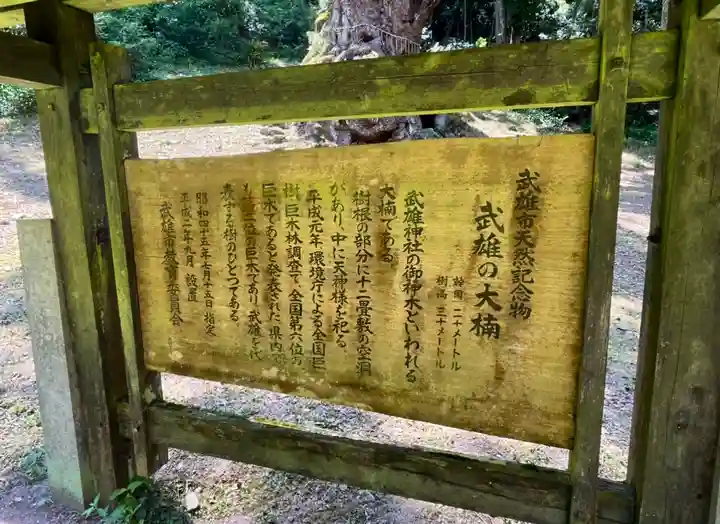 武雄市天然記念物
武雄の大楠
幹囲 二十メートル
樹高 三十メートル
武雄神社の御神木といわれる
大楠である。
樹根の部分に十二畳敷の空洞
があり、中に天神様を祀る。
平成元年、環境庁による全国巨
樹巨木林調査で、全国第六位の
巨木であると発表された。県内
二位の巨木であり、武雄を代
表する樹のひとつである。
昭和四十五年七月十五日 指定
平成二年九月 設置
武雄市教育委員会